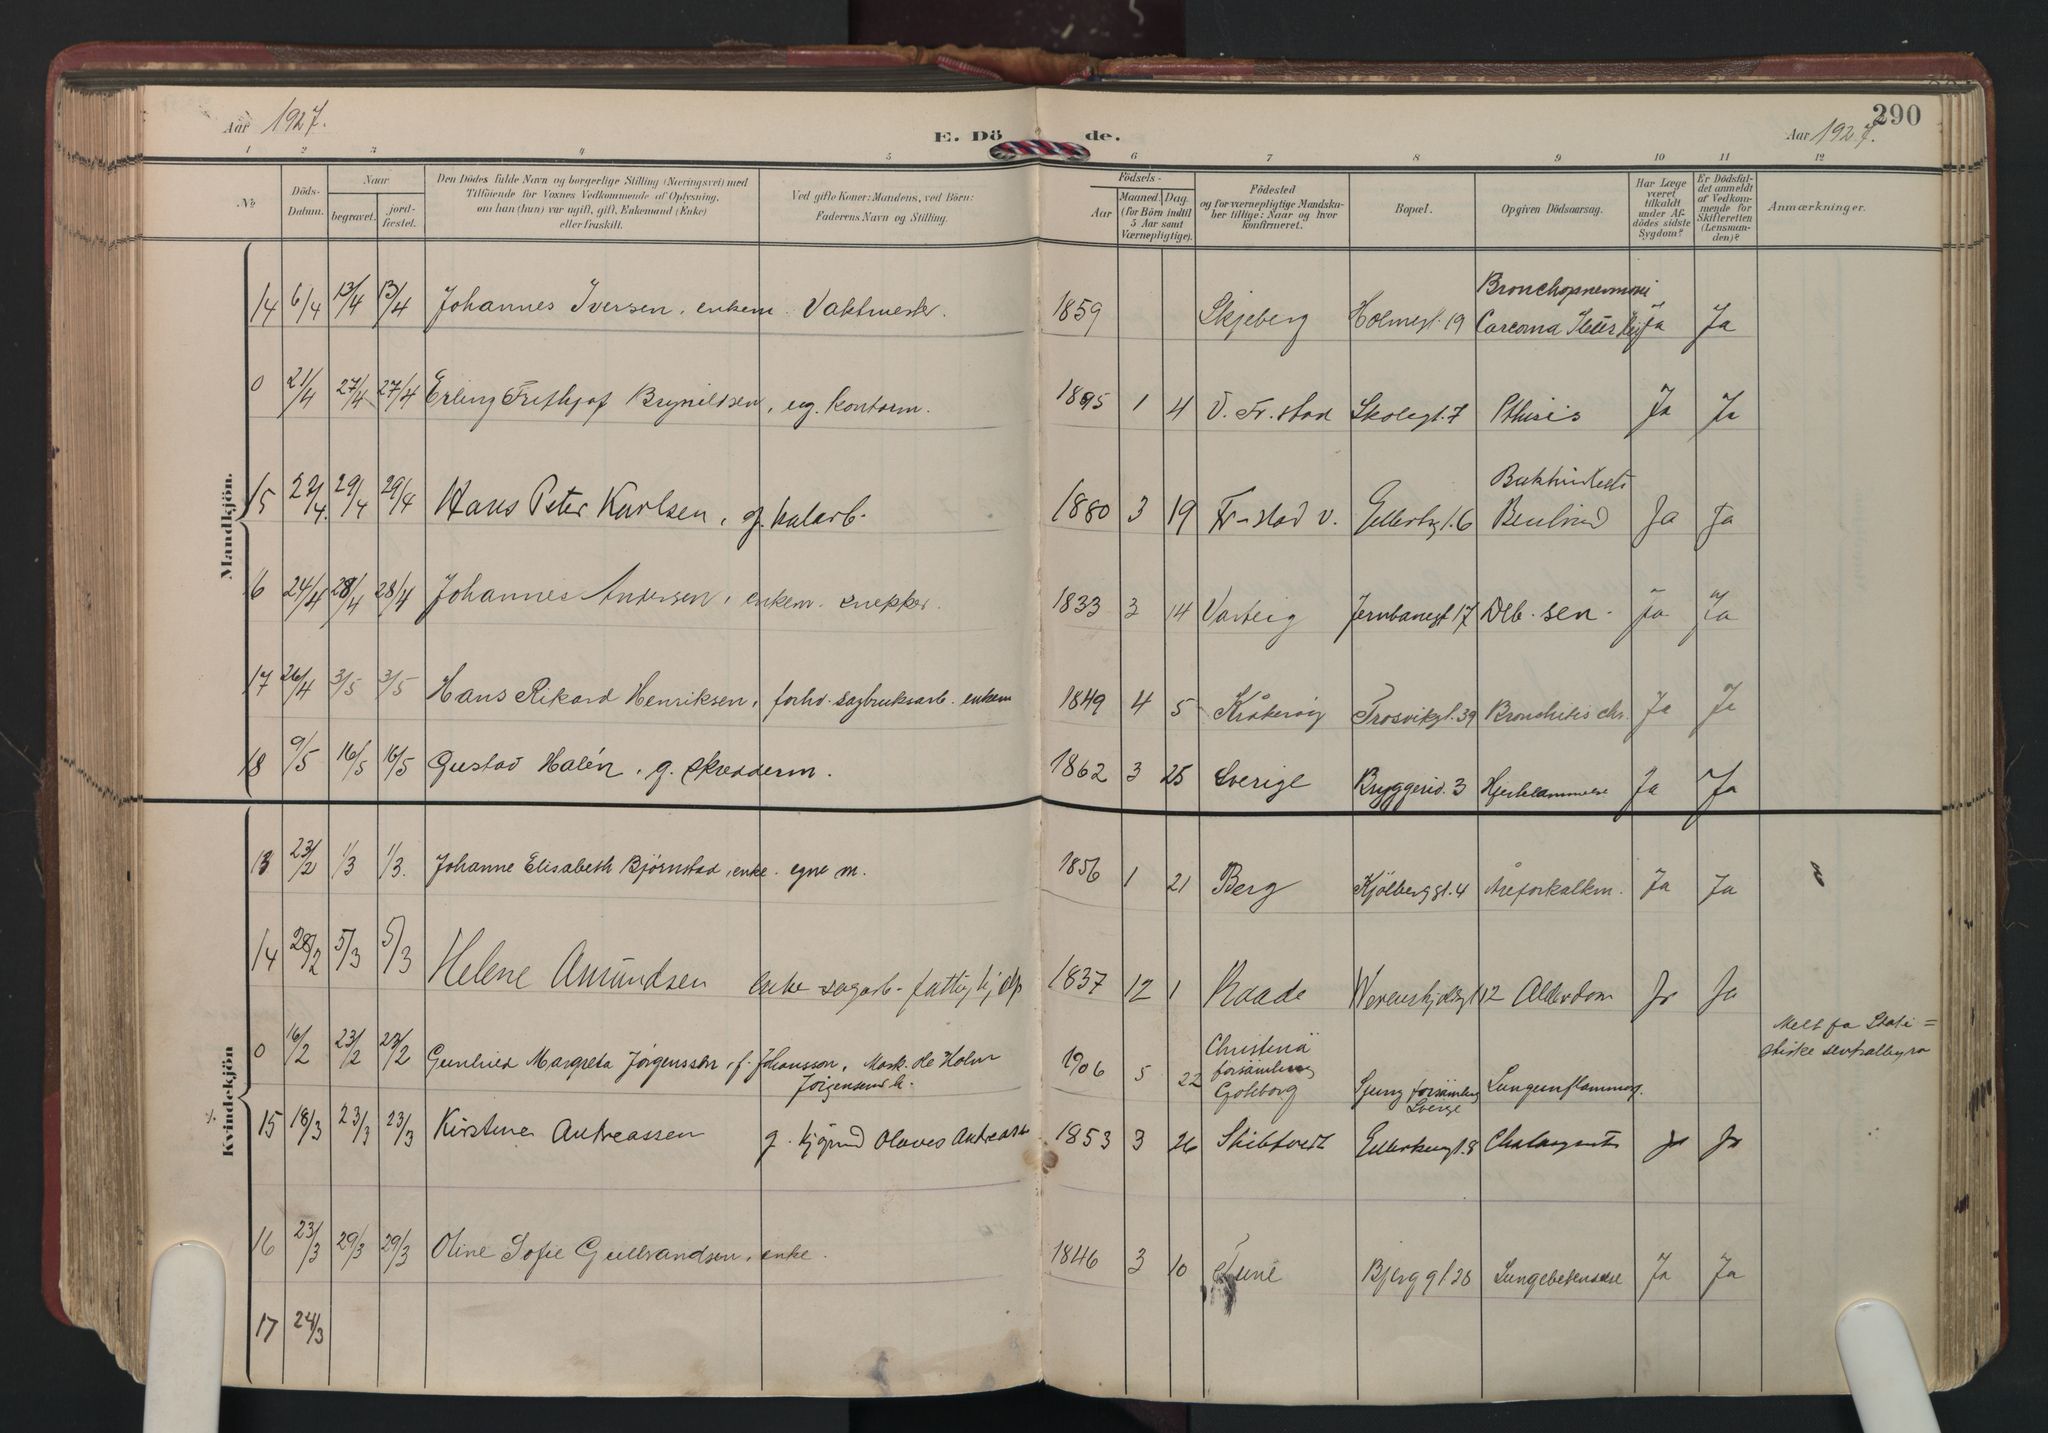 Aar 1927.
E. Dö de.
290
Aar 1927.
1 2 3 4 5 6 7 8 9 10 11 12
No
Döds-Datum.
Naar
begravet.
jord-fæstet.
Den Dödes fulde Navn og borgerlige Stilling (Næringsvei) med
Tilföiende for Voxnes Vedkommende af Oplysning,
om han (hun) var ugift, gift, Enkemand (Enke)
eller fraskilt.
Ved gifte Koner: Mandens, ved Börn:
Faderens Navn og Stilling.
Födsels-
Aar
Maaned. Dag.
(for Börn indtil
5 Aar samt
Værnepligtige).
Födested
og for værnepligtige Mandska-
ber tillige: Naar og hvor
konfirmeret.
Bopæl.
Opgiven Dödsaarsag.
Har Læge
været
tilkaldt
under Af-
dödes sidste
Sygdom?
Er Dödsfal-
det anmeldt
af Vedkom-
mende for
Skifteretten
(Lensman-
den)?
Anmærkninger.
Mandkjön.
14 6/4 13/4 13/4 Johannes Iversen, enkem. Vaktmester. 1859 Skjeberg Holmegt. 19 Bronchopneumoni Ja Ja
0 21/4 27/4 27/4 Erling Frithjof Brynildsen, ug. kontorm. 1895 1 4 V. Fr.stad Skolegt. 7 Pthisis Ja Ja
15 29/4 29/4 Hans Peter Karlsen, g. 1880 3 19 Fr-stad V. 6 Ja Ja
16 24/4 28/4 28/4 Johannes Andersen, enkem. snekker. 1833 3 14 Varteig Jernbanegt 17 Deb. sen. Ja Ja
17 26/4 3/5 3/5 Hans Rikard Henriksen, forhv. sagbruksarb. enkem 1849 4 5 Kråkerøy Trosvikgt. 39 Bronchitis chr. Ja Ja
18 9/5 16/5 16/5 Gustav Halén, g. skredderm. 1862 3 25 Sverige Bryggeriv. 3 Hjertelammelse Ja Ja
Kvindekjön
13 23/2 1/3 1/3. Johanne Elisabeth Bjørnstad, enke. egne m. 1856 1 21 Berg Kjølberggt. 4 Åreforkalkn. Ja Ja
14 28/2 5/3 5/3 Helene Amundsen enke sagarb. fattighjelp 1837 12 1 Raade 12 Alderdom Ja Ja
0 16/2 23/2 23/2 Gunhild Margreta Jørgensson, f. Johansson, Mask. Holm
Jørgensens h. 1906 5 22 Christinä
församling
Göteborg Ljung församling
Sverge Lungeinflammasj. Melt fa Stati=
stiske sentralbyra
15 18/3 23/3 23/3 Kirstine Andreassen g. Olaves Andreass 1853 3 26 Skibtvedt 8 Ja Ja
16 23/3 29/3 29/3 Oline Sofie Gulbrandsen, enke. 1846 3 10 Tune Bjerggt 28 Lungebetennelse Ja Ja
17 24/3